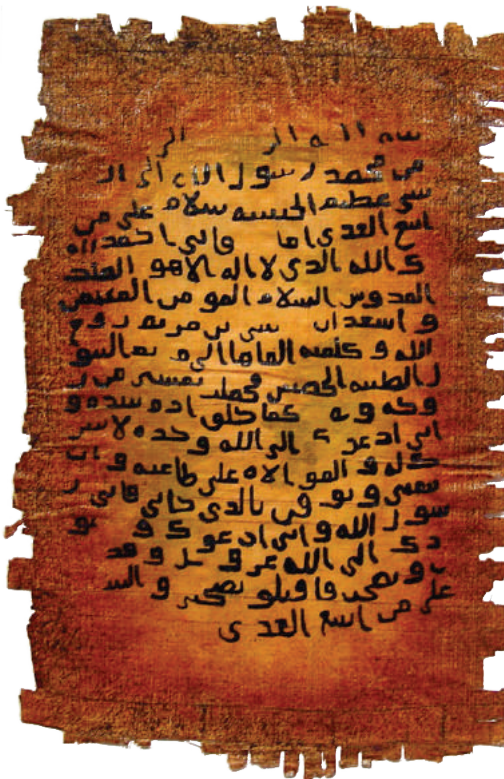 سم الله الر الر
من محمد رسول الله الى الـ
سى عظيم الحبسه سلام على من
اتبع الهدى اما و انى احمد اله
ك الله الدى لا اله الا هو الملك
القدوس السلام المومن المهيمن
و اسهد ان سى بن مريم روح
الله و كلمته القاها الى م يم البتو
ل الطيبه الحصنـ فحملت بعيسى من ر
وحه و ه كما خلق ادم بيده و
انى ادعو ك الى الله وحده لا سر
ك له و الموالاه على طاعته و ان
تتبعنى و تو قن بالدى جانى فانى ر
سول الله و انى ادعوك و نو
دك الى الله عز و جل و قد
ت و نصحت فاقبلو نصحتى و السـ
على من اتبع الهدى